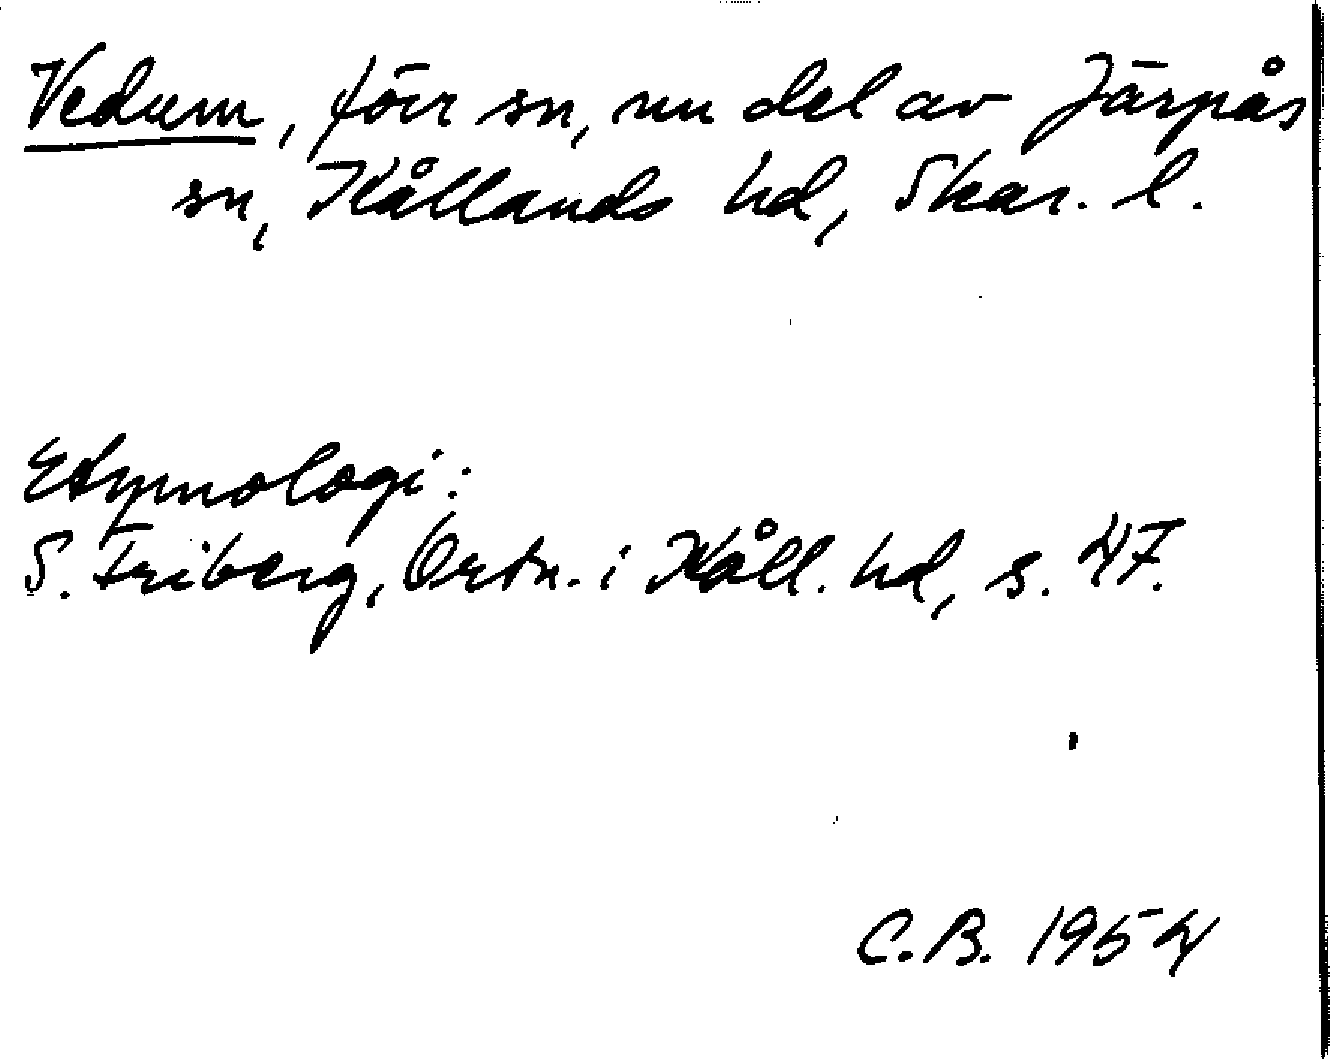 Vedum, förr sn, nu del av Järpås
sn, Kållands hd, Skar. l.
Etymologi:
S. Friberg, Ortn. i Kåll. hd, s. 47.
C.B. 1954